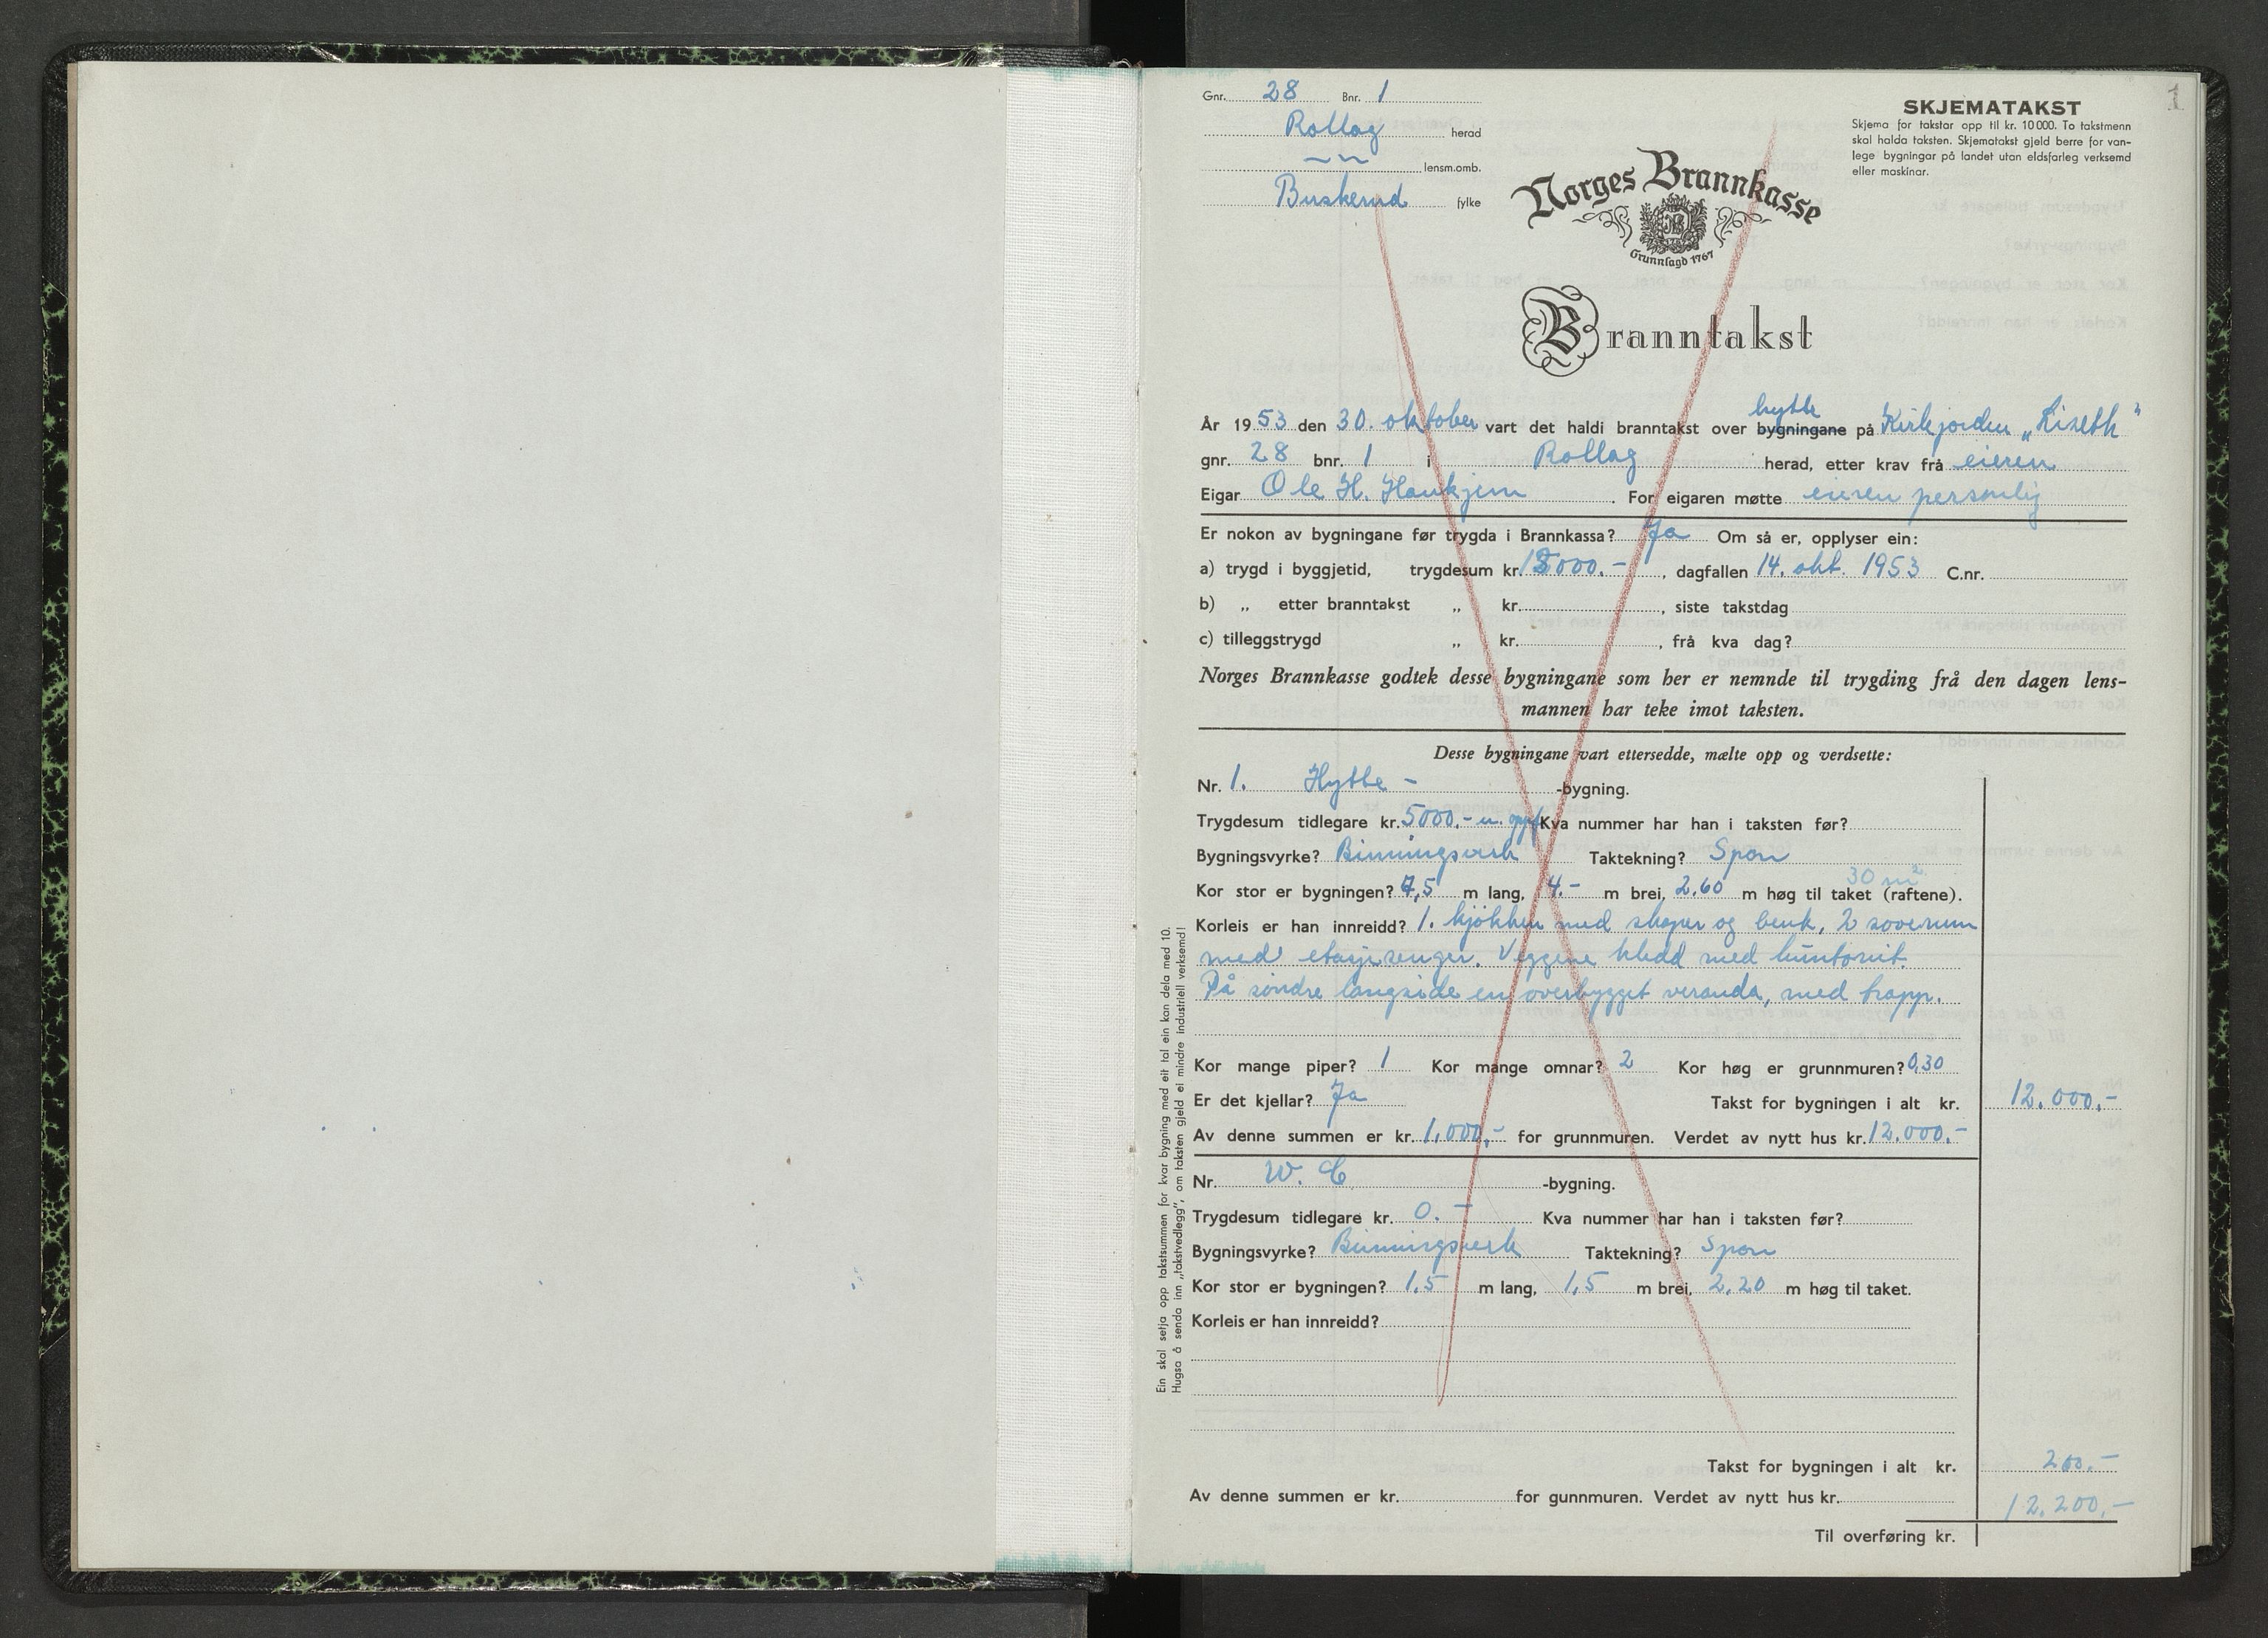 1
Gnr. 28 Bnr. 1
Rollag herad
lensm.omb.
Buskerud fylke
SKJEMATAKST
Skjema for takstar opp til kr. 10 000. To takstmenn
skal halda taksten. Skjematakst gjeld berre for van-
lege bygningar på landet utan eldsfarleg verksemd
eller maskinar.
Norges Brannkasse
Grunnlagd 1767
Branntakst
hytte
År 1953 den 30. oktober vart det haldi branntakst over bygningane på Kirkjorden „Liseth"
gnr. 28 bnr. 1 i Rollag herad, etter krav frå eieren
Eigar Ole H. Haukjem. For eigaren møtte eieren personlig
Er nokon av bygningane før trygda i Brannkassa? Ja Om så er, opplyser ein:
a) trygd i byggjetid, trygdesum kr. , dagfallen 14. okt. 1953 C.nr.
b) „ etter branntakst „ kr. , siste takstdag
c) tilleggstrygd „ kr. , frå kva dag?
Norges Brannkasse godtek desse bygningane som her er nemnde til trygding frå den dagen lens-
mannen har teke imot taksten.
Desse bygningane vart ettersedde, mælte opp og verdsette:
Nr. 1. Hytte - -bygning.
Trygdesum tidlegare kr. 5000.- u. oppf Kva nummer har han i taksten før?
Bygningsvyrke? Binningsverk Taktekning? Spon
30 m²
Kor stor er bygningen? 7,5 m lang, 4.- m brei, 2.60 m høg til taket (raftene).
Korleis er han innreidd? 1. kjøkken med skaper og benk, 2 soverum
med etasjesenger. Veggene kledd med huntonit.
På søndre langside en overbygget veranda, med trapp.
Kor mange piper? 1 Kor mange omnar? 2 Kor høg er grunnmuren? 0,30
Er det kjellar? Ja Takst for bygningen i alt kr. 12.000.-
Av denne summen er kr. 1.000,- for grunnmuren. Verdet av nytt hus kr. 12.000.-
Nr. W.C -bygning.
Trygdesum tidlegare kr. 0.- Kva nummer har han i taksten før?
Bygningsvyrke? Binningsverk Taktekning? Spon
Kor stor er bygningen? 1.5 m lang, 1,5 m brei, 2.20 m høg til taket.
Korleis er han innreidd?
Takst for bygningen i alt kr. 200.-
Av denne summen er kr. for gunnmuren. Verdet av nytt hus kr. 12.200,-
Til overføring kr.
Ein skal setja opp takstsummen for kvar bygning med eit tal ein kan dela med 10.
Hugsa å senda inn „takstvedlegg", om taksten gjeld ei mindre industriell verksemd!